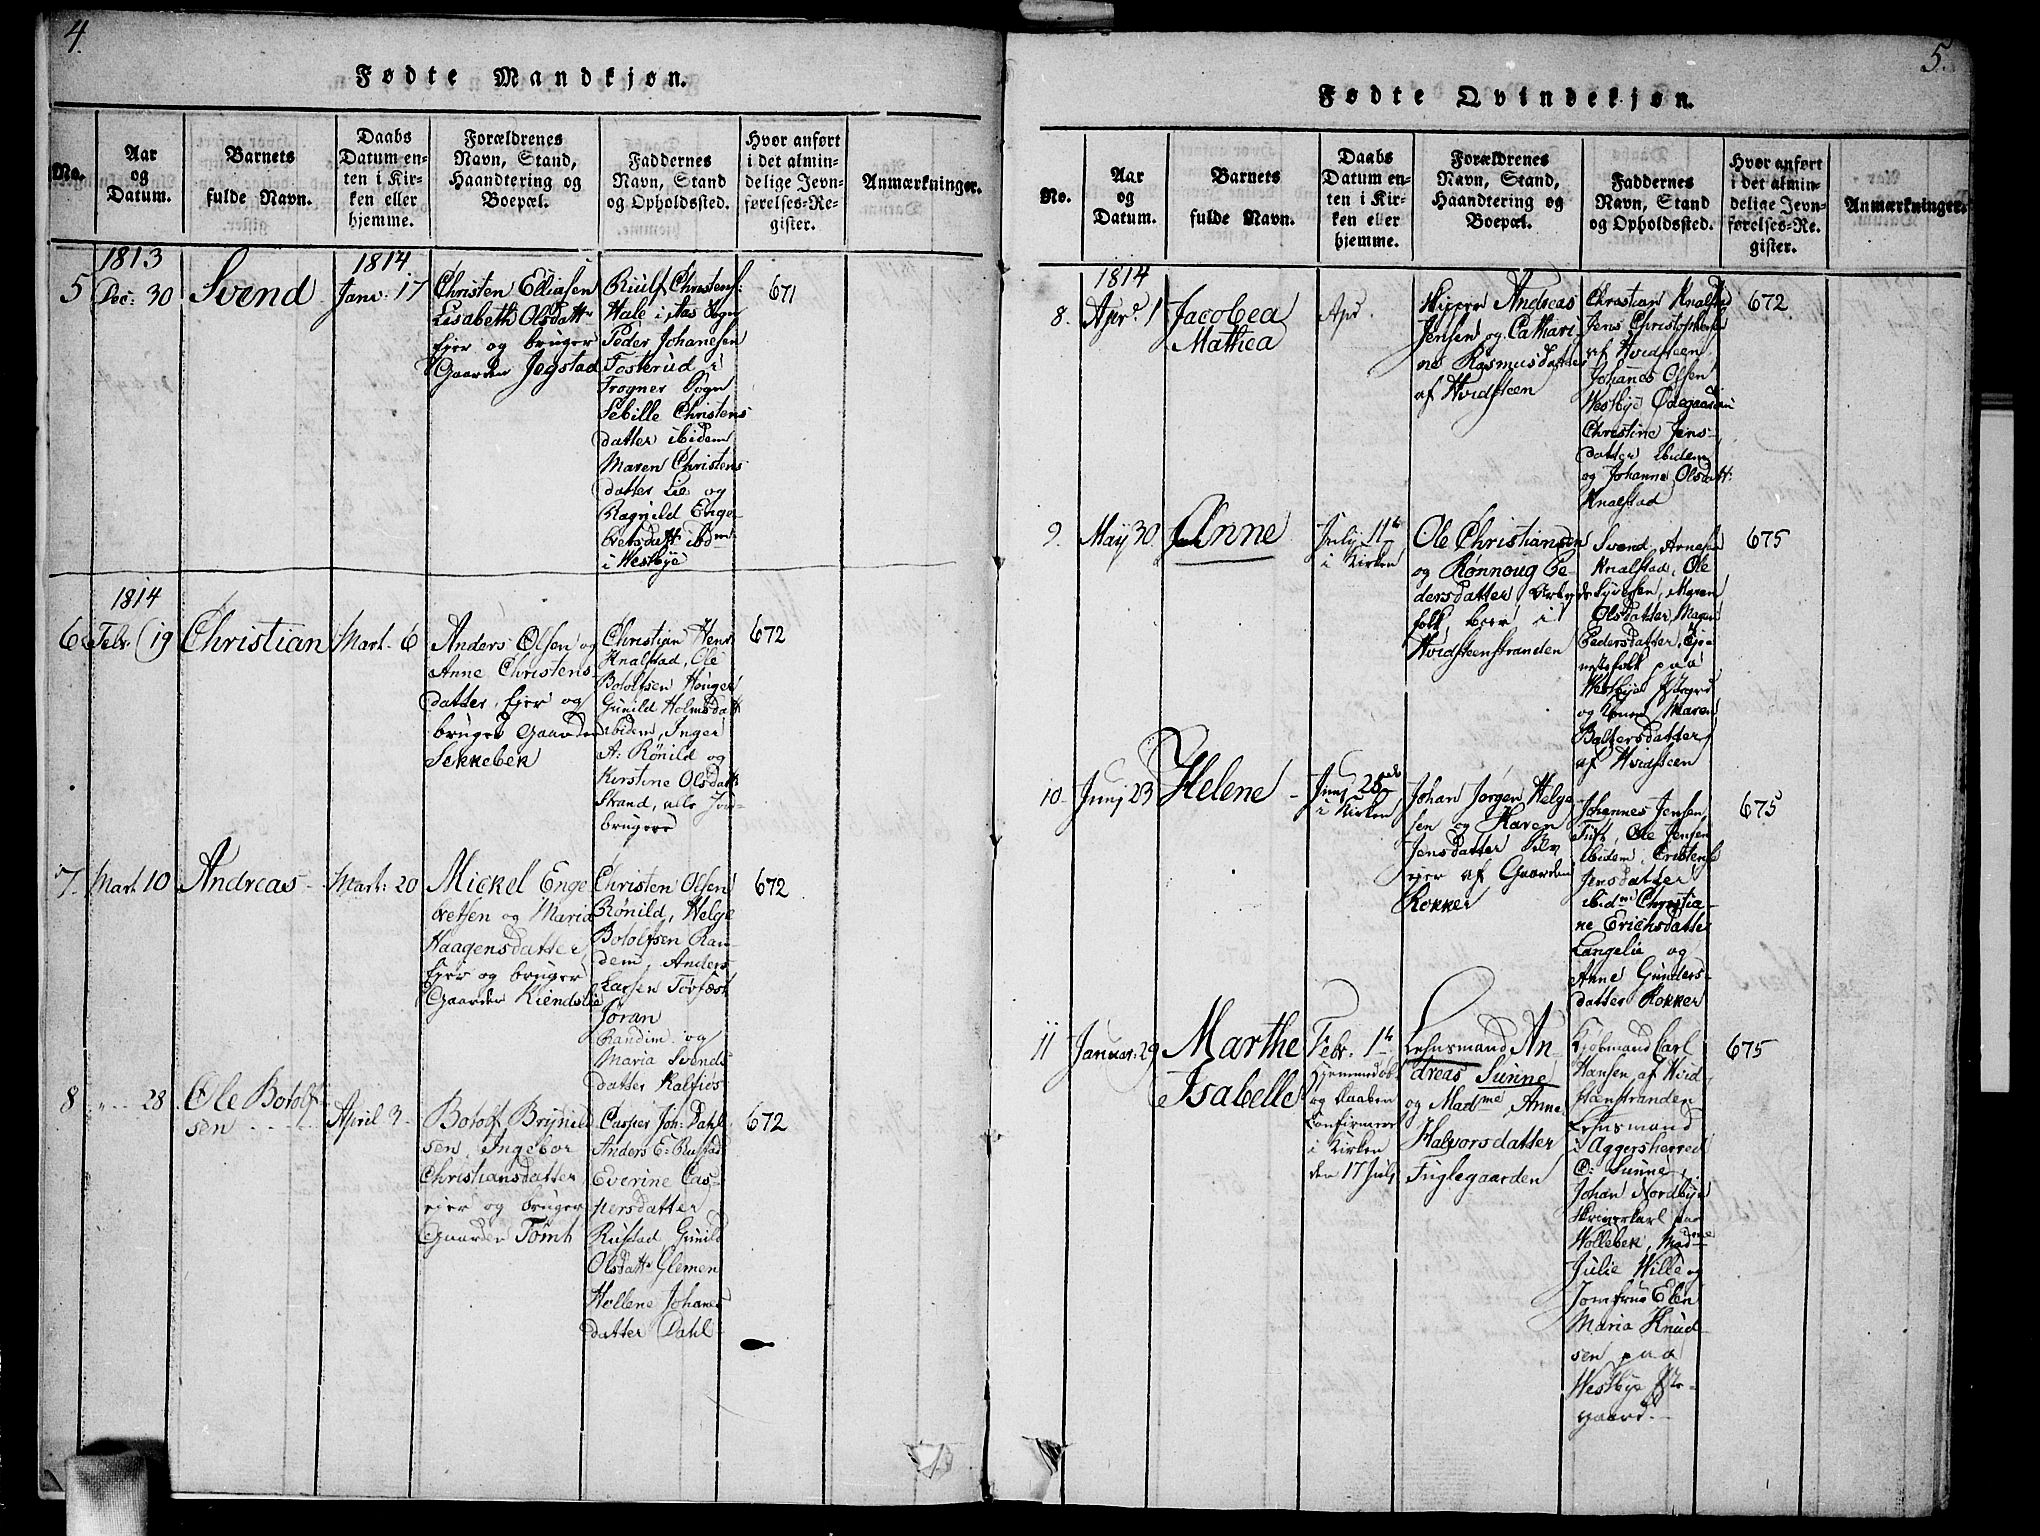 4.
Fødte Mandkjøn.
No.
Aar
og
Datum.
Barnets
fulde Navn.
Daabs
Datum en-
ten i Kir-
ken eller
hjemme.
Forældrenes
Navn, Stand,
Haandtering og
Boepæl.
Faddernes
Navn, Stand
og Opholdssted.
Hvor anført
i det almin-
delige Jevn-
førelses-Re-
gister.
Anmærkninger.
1813
5 Dec: 30
Svend
1814
Janv: 17
Christen Elliasen
Lisabeth Olsdattr
Ejer og bruger
Gaarden Jegstad
Christens:
Hale i Aas Sogn
Peder Johanesen
Fosterud i
Frogner Sogn
Sebille Christens
datter ibidem
Maren Christens
datter Lie og
Ragnild Enge-
bretsdattr ibdm
i Westbye
671
1814
6 Febr. 19
Christian
Mart. 6
Anders Olsen og
Anne Christens-
datter, Ejer og
bruger Gaarden
Sekkebek
Christian Hens
Knalstad, Ole
Botolfsen Houger
Gunild Holmsdattr
ibidem, Inger
A: Rønild og
Kirstine Olsdattr
Strand, alle Jord-
brugere
672
7. Mart. 10
Andreas
Mart: 20
Mickel Enge
bretsen og Maria
Haagensdatter
Ejer og bruger
Gaarden Kiendslie
Christen Olsen
Rønild, Helge
Botolfsen Ran-
dem, Anders
Larsen Torfæst
Jøran
Randim og
Maria Svends
datter Kalfios-
672
8 " 28
Ole Botolf-
sen
April 3
Botolf Brynild
sen, Ingebor
Christiansdatter
ejer og bruger
Gaarden Tømt
Casper Joh: Dahl
Anders E: Rustad
Everine Cas-
persdatter
Rustad Gunild
Olsdattr Glemen
Hellene Johanes
datter Dahl
672
5.
Fødte Qvindekjøn.
No.
Aar
og
Datum.
Barnets
fulde Navn.
Daabs
Datum en-
ten i Kir-
ken eller
hjemme.
Forældrenes
Navn, Stand,
Haandtering og
Boepæl.
Faddernes
Navn, Stand
og Opholdssted.
Hvor anført
i det almin-
delige Jevn-
førelses-Re-
gister.
Anmærkninger.
1814
8. Apr. 1
Jacobea
Mathea
Apr.
Skipper Andreas
Jensen og Cathari
ne Rasmusdatter
af Hvidsteen
Christian Knalstad
Jens Christophersen
af Hvidsteen
Johanes Olsen
Westbye Ødegaarden
Christine Jens-
datter ibidem
og Johanne Olsdattr
Knalstad
672
9. May 30
Anne
July 11te
i Kirken
Ole Christiansen
og Rønnoug Pe-
dersdatter Arbejds
folk, boer i
Hvidsteenstranden
Svend Arnesen
Knalstad, Ole
Syversen, Maren
Olsdatter, Magn
Pedersdatter, tje-
nestefolk paa
Westbye Præstegrd
og Konen Maren
Baltersdatter
af Hvidsteen
675
10. Junj 23
Helene
Junj 25de
i Kirken
Johan Jørgen Helge
sen og Karen
Jensdatter Selv
ejer af Gaarden
Rokker
Johannes Jensen
Tuft, Ole Jensen
ibidem, Cristense
Jensdatter
ibidm Christia-
ne Erichsdatter
Langelie og
Anne Gunders-
datter Rokker
675
11 Januar: 29
Marthe
Isabelle
Febr. 1te
Hjemmedøbt
og Daaben
Confirmeret
i Kirken
den 17 Julj
Lehnsmand An-
dreas Sunne
og Madme Anne
Halvorsdatter
Fuglegaarden
Kjøbmand Carl
Hansen af Hvid
stænstranden
Lehnsmand
i Aggersherred
C: Sunne,
Johan Nordbye
Skriverkarl paa
Wollebek, Madme
Julie Wille og
Jomfrue Elen
Maria Knud-
sen paa
Westbye Præste-
gaard.
675